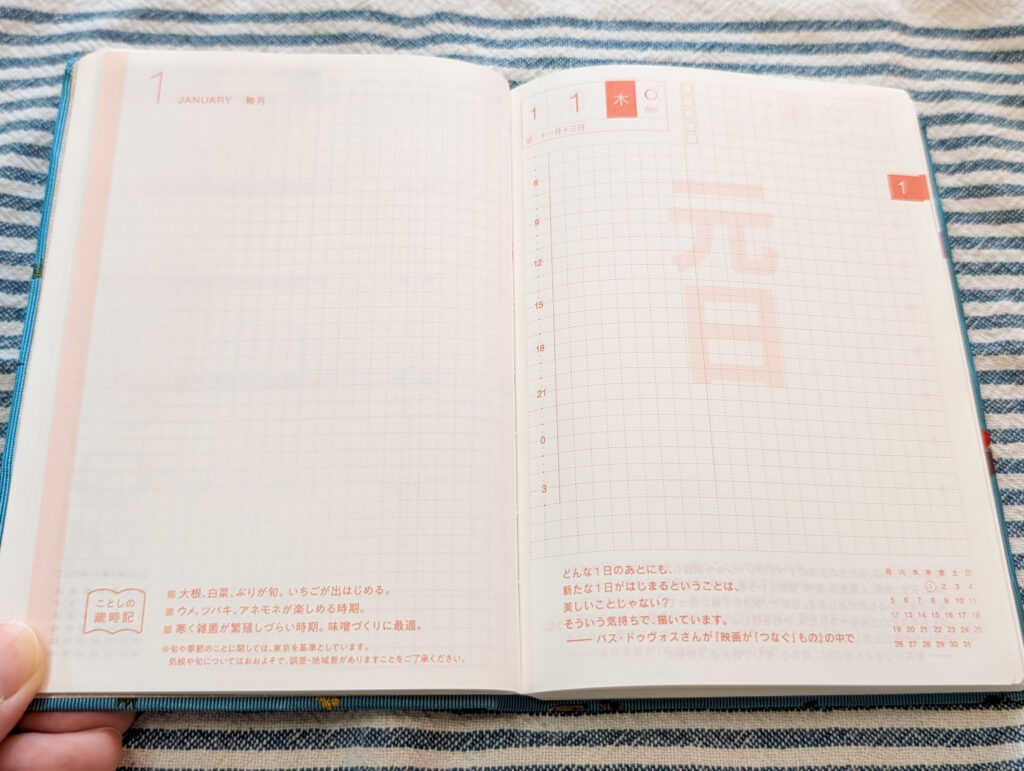 1 JANUARY 睦月
ことしの
歳時記
■ 大根、白菜、ぶりが旬。いちごが出はじめる。
■ ウメ、ツバキ、アネモネが楽しめる時期。
■ 寒く雑菌が繁殖しづらい時期。味噌づくりに最適。
※旬や季節のことに関しては、東京を基準としています。
気候や旬についてはおおよそで、誤差・地域差がありますことをご了承ください。
1 1 木
001
十一月十三日
1
元日
6
9
12
15
18
21
0
3
どんな1日のあとにも、
新たな1日がはじまるということは、
美しいことじゃない?
そういう気持ちで、描いています。
―― バス・ドゥヴォスさんが『映画が「つなぐ」もの』の中で
月 火 水 木 金 土 日
1 2 3 4
5 6 7 8 9 10 11
12 13 14 15 16 17 18
19 20 21 22 23 24 25
26 27 28 29 30 31